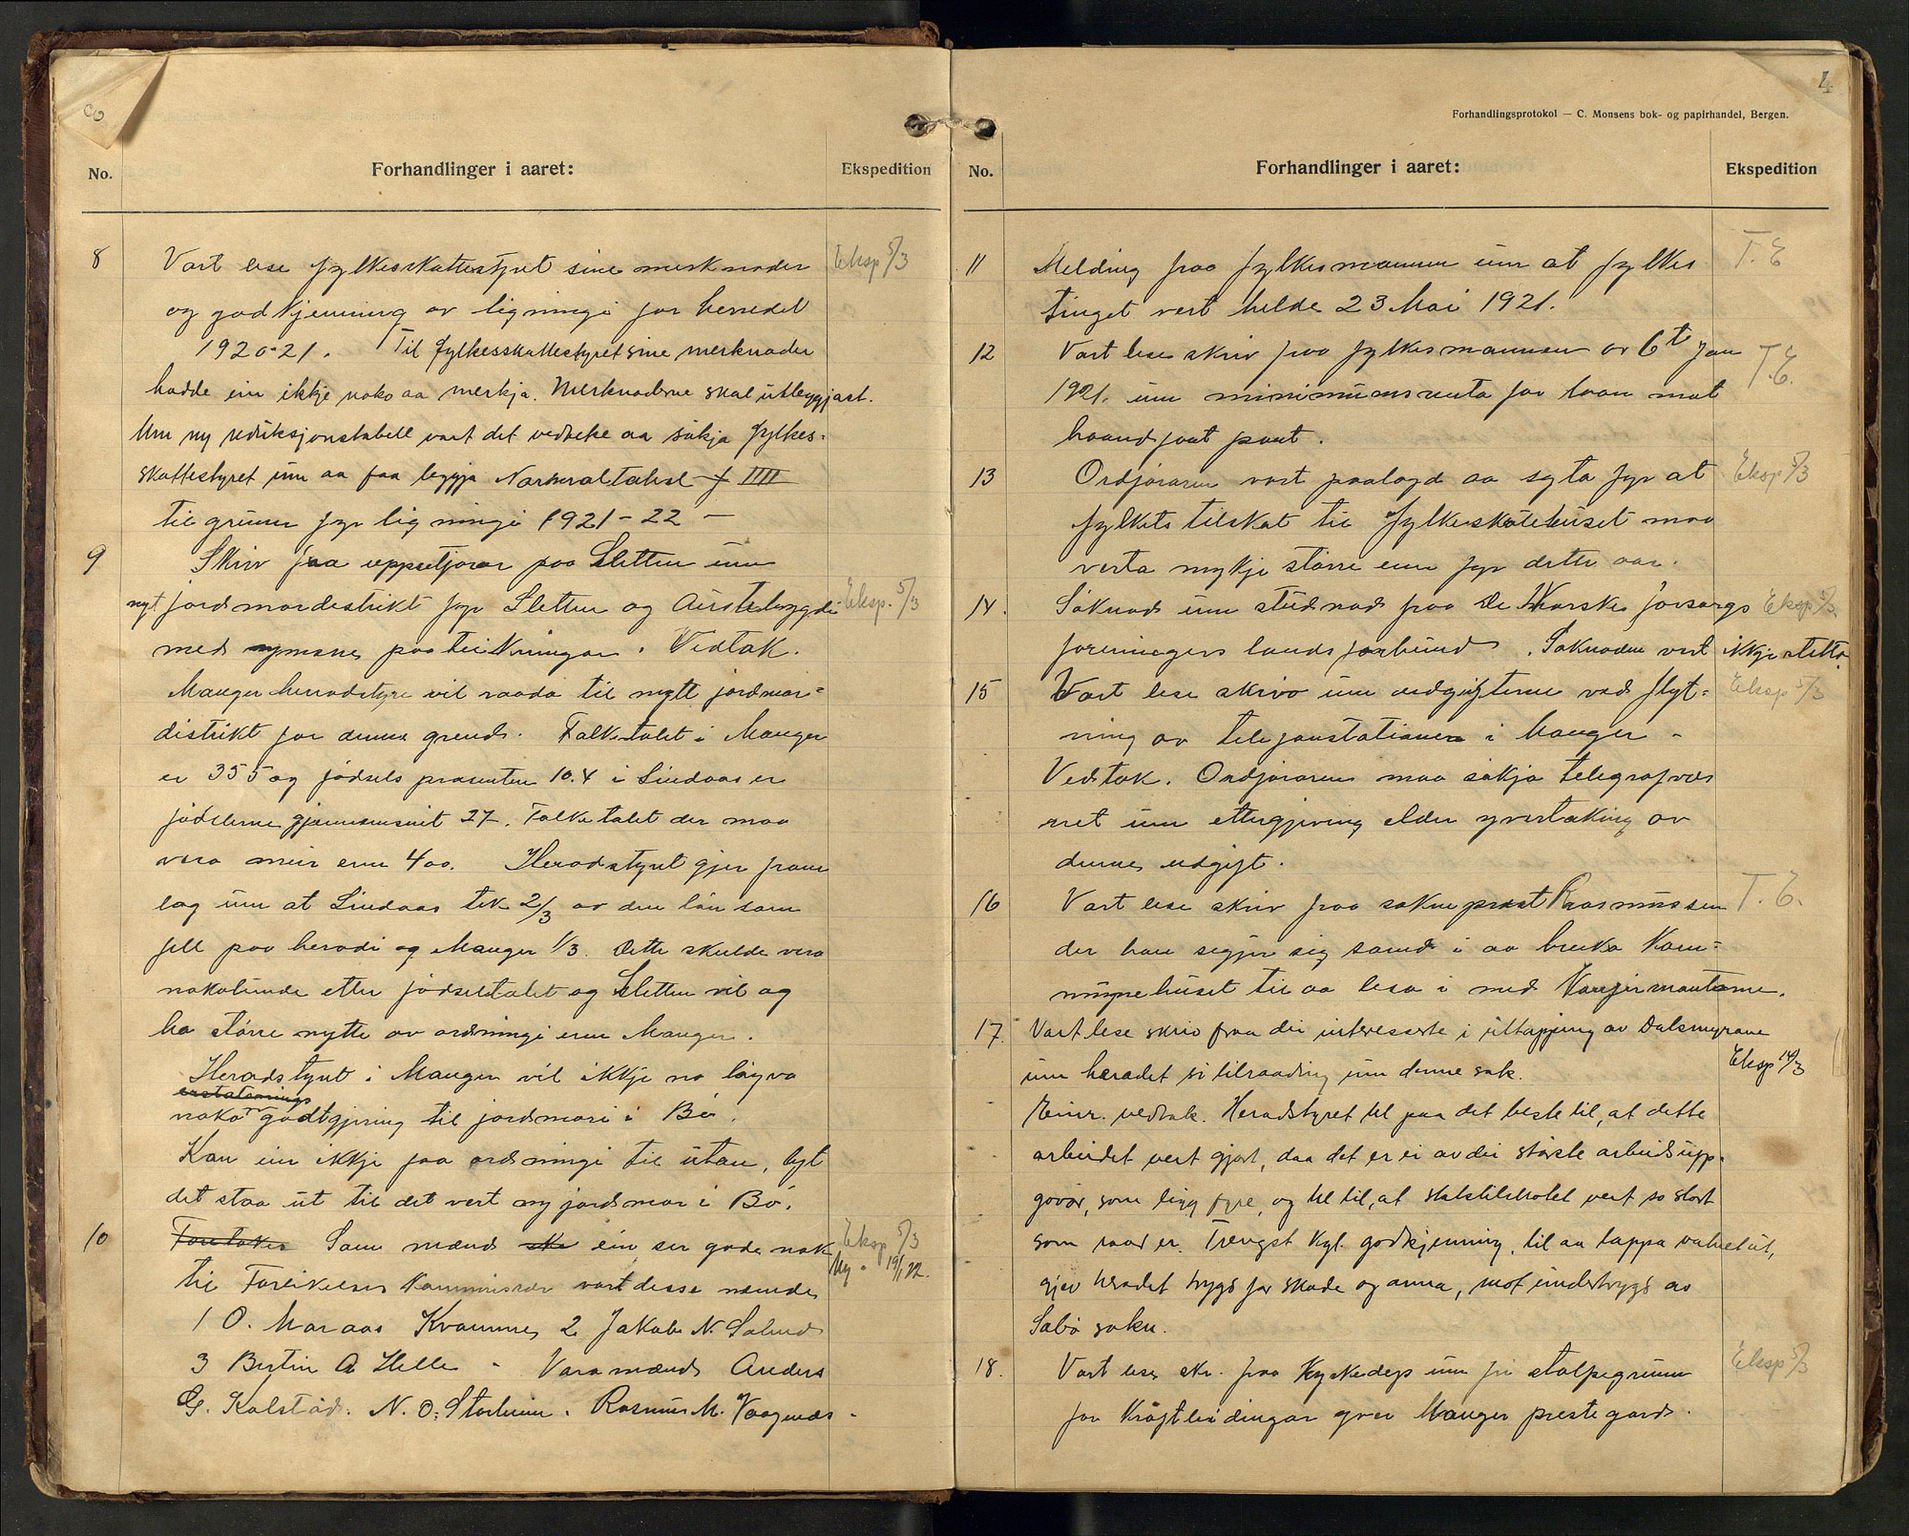 3
No.
Forhandlinger i aaret:
Ekspedition
8 Vart lese fylkesskattestyret sine merknader Eksp 5/3
og godkjenning av ligningi for herredet
1920-21. Til fylkesskattestyret sine merknader
hadde ein ikkje noko aa merkja. Merknaderne skal utleggjast.
Um ny reduksjonstabell vart det vedteke aa søkja fylkes-
skattestyret um aa faa leggja Normaltabel IIII
til grunn fyr ligningi 1921-22 -
9 Skriv fraa uppsetjarar paa Sletten um
nyt jordmordistrikt fyr Sletten og Austebygdi Eksp. 5/3
med paateikningar. Vedtak.
Manger heradstyre vil raada til nytt jordmor-
distrikt for denne grend. Folketalet i Manger
er 355 og fødselsprosenten 10.4 i Lindaas er
fødslerne gjennomsnit 27. Folketalet der maa
vera meir enn 400. Heradstyret gjer fram
lag um at Lindaas tek 2/3 av den løn som
fell paa heradi og Manger 1/3. Dette skulde vera
nokolunde etter fødselstalet og Sletten vil og
ha større nytte av ordningi enn Manger.
Heradstyret i Manger vil ikkje no løyva
erstatnings
noko godtgjering til jordmori i Bø.
Kan ein ikkje faa ordningi til utan, lyt
det staa ut til det vert ny jordmor i Bø.
10 Som mænd ein ser gode nok Eksp 5/3
til Forlikelses Kommissær vart desse nemde Ny " 19/1 22.
1 O. Maraas Kvamme, 2 Jakob N. Solend
3 Bertin A Helle - Varamænd Anders
G. Kolstad. N. O. Storheim. Rasmus M. Vaagenes -
4
Forhandlingsprotokol — C. Monsens bok- og papirhandel, Bergen.
No.
Forhandlinger i aaret:
Ekspedition
11 Melding fraa fylkesmannen um at fylkes T. E
tinget vert helde 23 Mai 1921.
12 Vart lese skriv fraa fylkesmannen av 6t Jan T. E.
1921. um minimumsrenta for laan mot
haandfaat pant.
13 Ordføraren vart paalagd aa syta fyr at Eksp 5/3
fylkets tilskot til fylkesskulehuset maa
verta mykje større enn fyr dette aar.
14. Søknad um studnad fraa De Norske Forsorgs Eksp 5/3
foreningers landsforbund. Søknaden vart ikkje stetta.
15 Vart lese skriv um udgifterne ved flyt- Eksp 5/3
ning av telefonstationen i Manger -
Vedtak. Ordføraren maa søkja telegrafvæs
net um ettergjeving elder yvertaking av
denne udgift.
16 Vart lese skriv fraa sokneprest Rasmussen T. E.
der han segjer sig samd i aa bruka Kom-
munehuset til aa lesa i med Konfirmantarne.
17. Vart lese skriv fraa dei interesserte i uttapping av Dalemyrane
um heradet si tilraading um denne sak. Eksp 14/3
Einr. vedtak. Heradstyret set paa det beste til, at dette
arbeidet vert gjort, daa det er ei av dei største arbeidsupp-
gaver, som ligg fyre, og til, at statstilskotet vert so stort
som raad er. Trengst Kgl. godkjenning, til aa tappa vatnet ut,
gjev heradet trygd for skade og anna, mot undertrygd av
Sæbø sokn.
18. Vart lese skr. fraa Kyrkedep um fri stolpegrunn Eksp 5/3
for Kraftleidingar yver Manger prestegard.